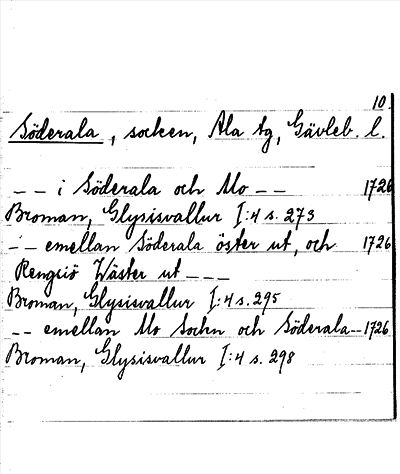 10.
Söderala, socken, Ala tg, Gävleb. l.
-- i Söderala och Mo -- 1726
Broman, Glysisvallur I:4 s. 273
-- emellan Söderala öster ut, och 1726
Rengsiö Wäster ut ---
Broman, Glysisvallur I:4 s. 295
-- emellan Mo Sochn och Söderala -- 1726
Broman, Glysisvallur I:4 s. 298